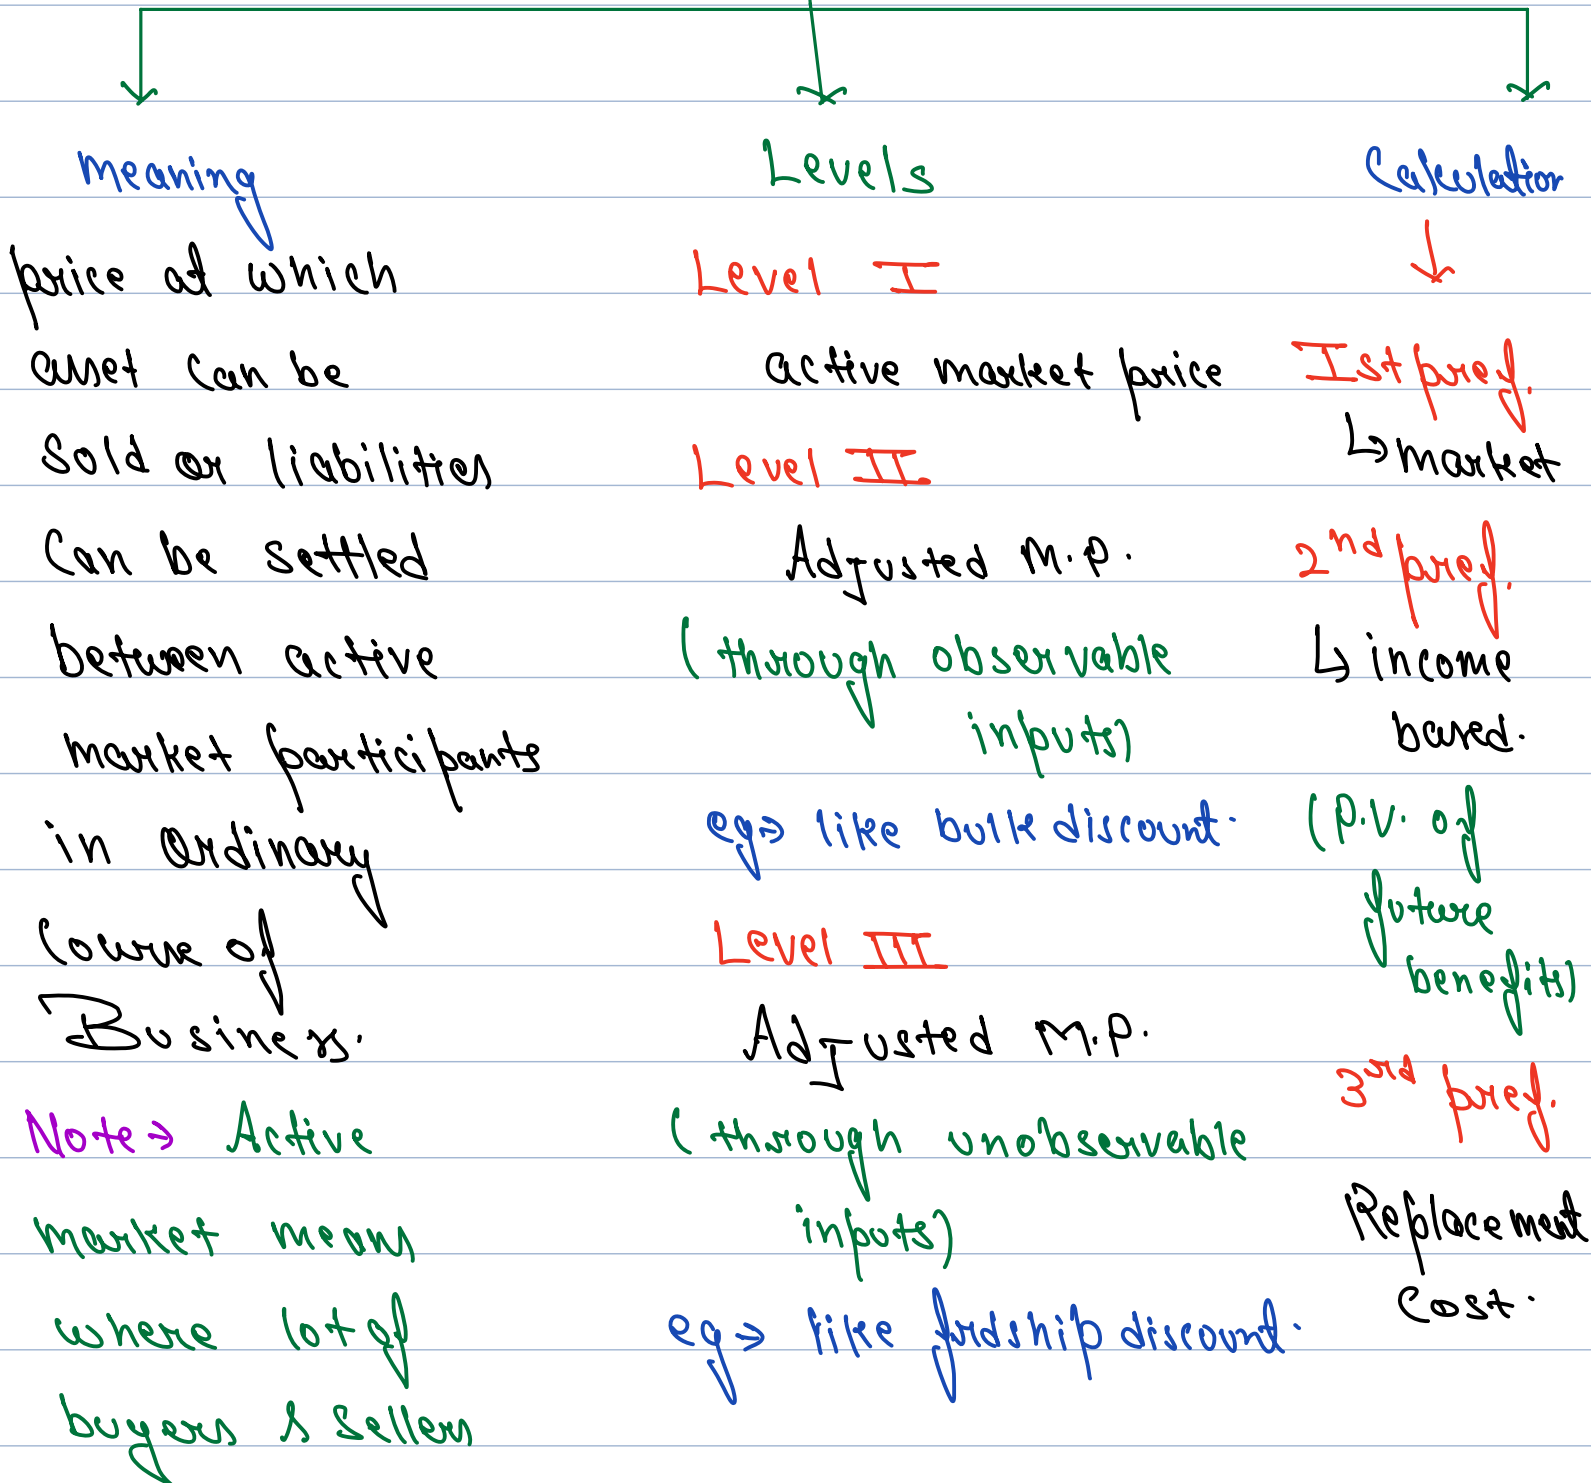 Meaning
price at which
asset can be
sold or liabilities
can be settled
between active
market participants
in ordinary
course of
Business.
Note→ Active
market means
where lot of
buyers & sellers
Levels
Level I
active market price
Level II
Adjusted M.P.
(through observable
inputs)
eg→ like bulk discount.
Level III
Adjusted M.P.
(through unobservable
inputs)
eg→ like frdship discount.
Calculation
↓
Ist pref.
↳ market
2nd pref.
↳ income
based.
(P.V. of
future
benefits)
3rd pref.
Replacement
Cost.